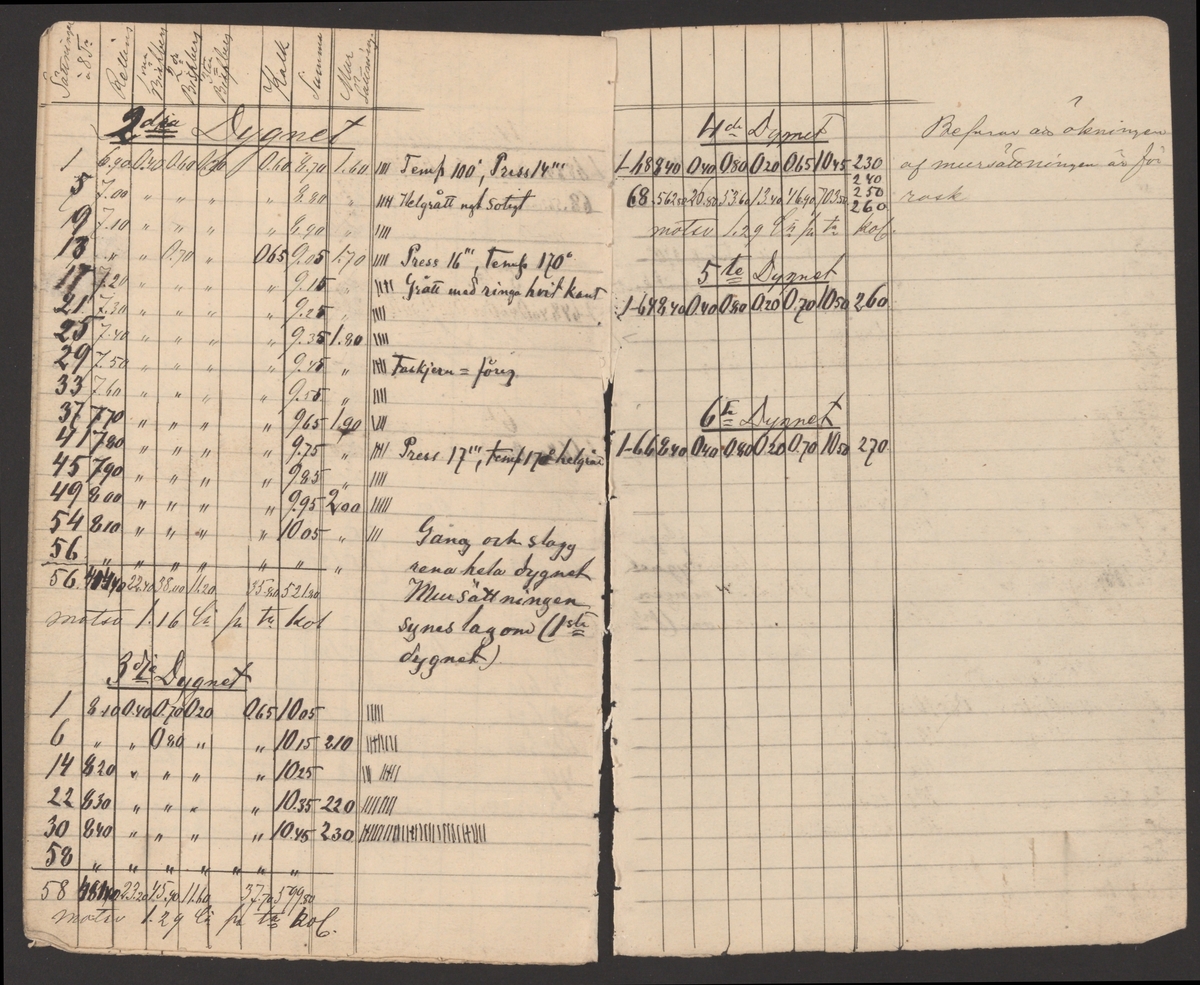 Sättningar à 8 Tr
Kalk
Summa
Efter Sättning.
2dra Dygnet
1 6.90 0.40 0.60 0.20 0.60 8.70 1.60 Temp 100°, Press 14'''
5 7.00 " " " " 8.80 " Helgrått nyt sotigt
9 7.10 " " " " 8.90 "
13 " " 0.70 " 0.65 9.05 1.70 Press 16''', temp 170°
17 7.20 " " " " 9.15 " Grått med ringa hvit kant
21 7.30 " " " " 9.25 "
25 7.40 " " " " 9.35 1.80
29 7.50 " " " " 9.45 " Tackjern = förig
33 7.60 " " " " 9.55 "
37 7.70 " " " " 9.65 1.90
41 7.80 " " " " 9.75 " Press 17''', temp 170° helgrått
45 7.90 " " " " 9.85 "
49 8.00 " " " " 9.95 2.00
54 8.10 " " " " 10.05 "
Gang och slagg
56 " " " " " " "
rena hela dygnet
56. 22.40 38.40 11.20 35.80 521.80
Mursättningen
motsv 1.16 pr tr kol
synes lagom (1sta
dygnet)
3dje Dygnet
1 8.10 0.40 0.70 0.20 0.65 10.05
6 " " 0.80 " " 10.15 2.10
14 8.20 " " " " 10.25
22 8.30 " " " " 10.35 2.20
30 8.40 " " " " 10.45 2.30
58 " " " " " " "
58 23.20 45.90 11.60 37.70 599.80
motsv 1.29 pr tr kol.
4de Dygnet
1-68 8.40 0.40 0.80 0.20 0.65 10.45 2.30
2.40
68. 53.60 13.40 2.50
2.60
motsv 1.29 pr tr kol.
?
Befarar att ökningen
af mursättningen är för
rask
5te Dygnet
1-64 8.40 0.40 0.80 0.20 0.70 10.50 2.60
6te Dygnet
1-66 8.40 0.40 0.80 0.20 0.70 10.50 2.70